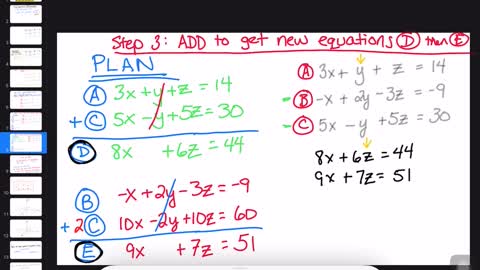 Step 3: ADD to get new equations (D) then (E)
PLAN
(A) 3x + y + z = 14
+ (C) 5x - y + 5z = 30
(D) 8x + 6z = 44
(B) -x + 2y - 3z = -9
+ 2(C) 10x - 2y + 10z = 60
(E) 9x + 7z = 51
(A) 3x + y + z = 14
- (B) -x + 2y - 3z = -9
- (C) 5x - y + 5z = 30
8x + 6z = 44
9x + 7z = 51